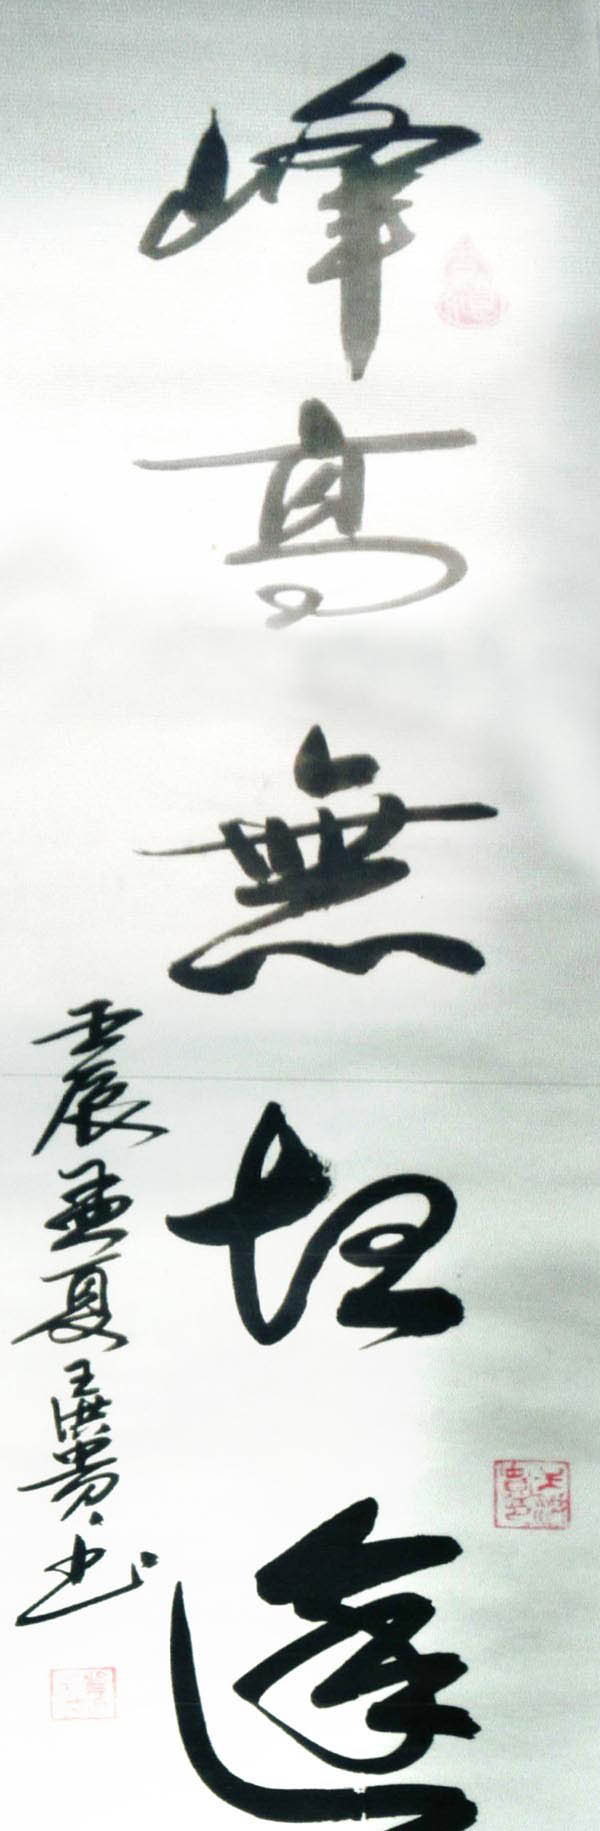 峰高無坦途
壬辰孟夏王洪貴書